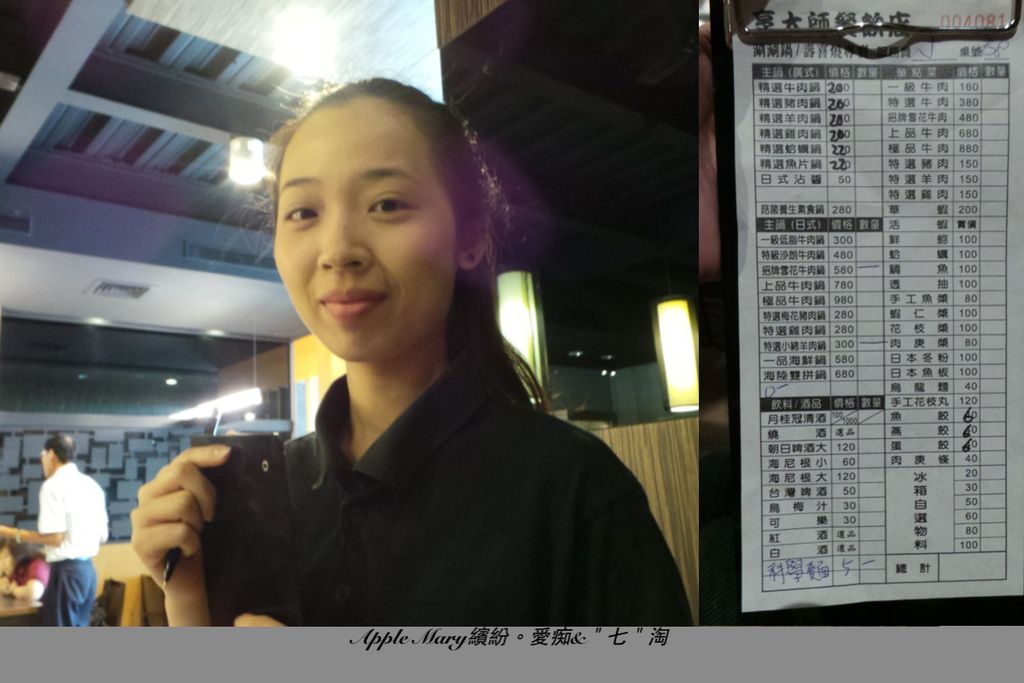 享大師餐飲店 004081
涮涮鍋/壽喜燒專賣 服務員 桌號
主鍋(廣式) 價格 數量
精選牛肉鍋
精選豬肉鍋
精選羊肉鍋
精選雞肉鍋
精選蛤蠣鍋
精選魚片鍋
日式沾醬 50
菇菌養生素食鍋 280
主鍋(日式) 價格 數量
一級低脂牛肉鍋 300
特級沙朗牛肉鍋 480
招牌雪花牛肉鍋 580 一
上品牛肉鍋 780
極品牛肉鍋 980
特選梅花豬肉鍋 280
特選雞肉鍋 280
特選小綿羊肉鍋 300 一
一品海鮮鍋 580
海陸雙拼鍋 680
飲料/酒品 價格 數量
月桂冠清酒 100/1000
燒酒 選品
朝日啤酒大 120
海尼根小 60
海尼根大 120
台灣啤酒 50
烏梅汁 30
可樂 30
紅酒 選品
白酒 選品
科學麵 5 一
單點菜 價格 數量
一級牛肉 160
特選牛肉 380
招牌雪花牛肉 480
上品牛肉 680
極品牛肉 880
特選豬肉 150
特選羊肉 150
特選雞肉 150
草蝦 200
活蝦 實價
鮮蚵 100
蛤蠣 100
鯛魚 100
透抽 100
手工魚漿 80
蝦仁漿 100
花枝漿 100
肉庚漿 80
日本冬粉 100
日本魚板 100
烏龍麵 40
手工花枝丸 120
魚餃
燕餃
蛋餃
肉庚條 40
冰箱自選物料 20
30
50
60
80
100
總計
Apple Mary繽紛。愛痴&"七"淘